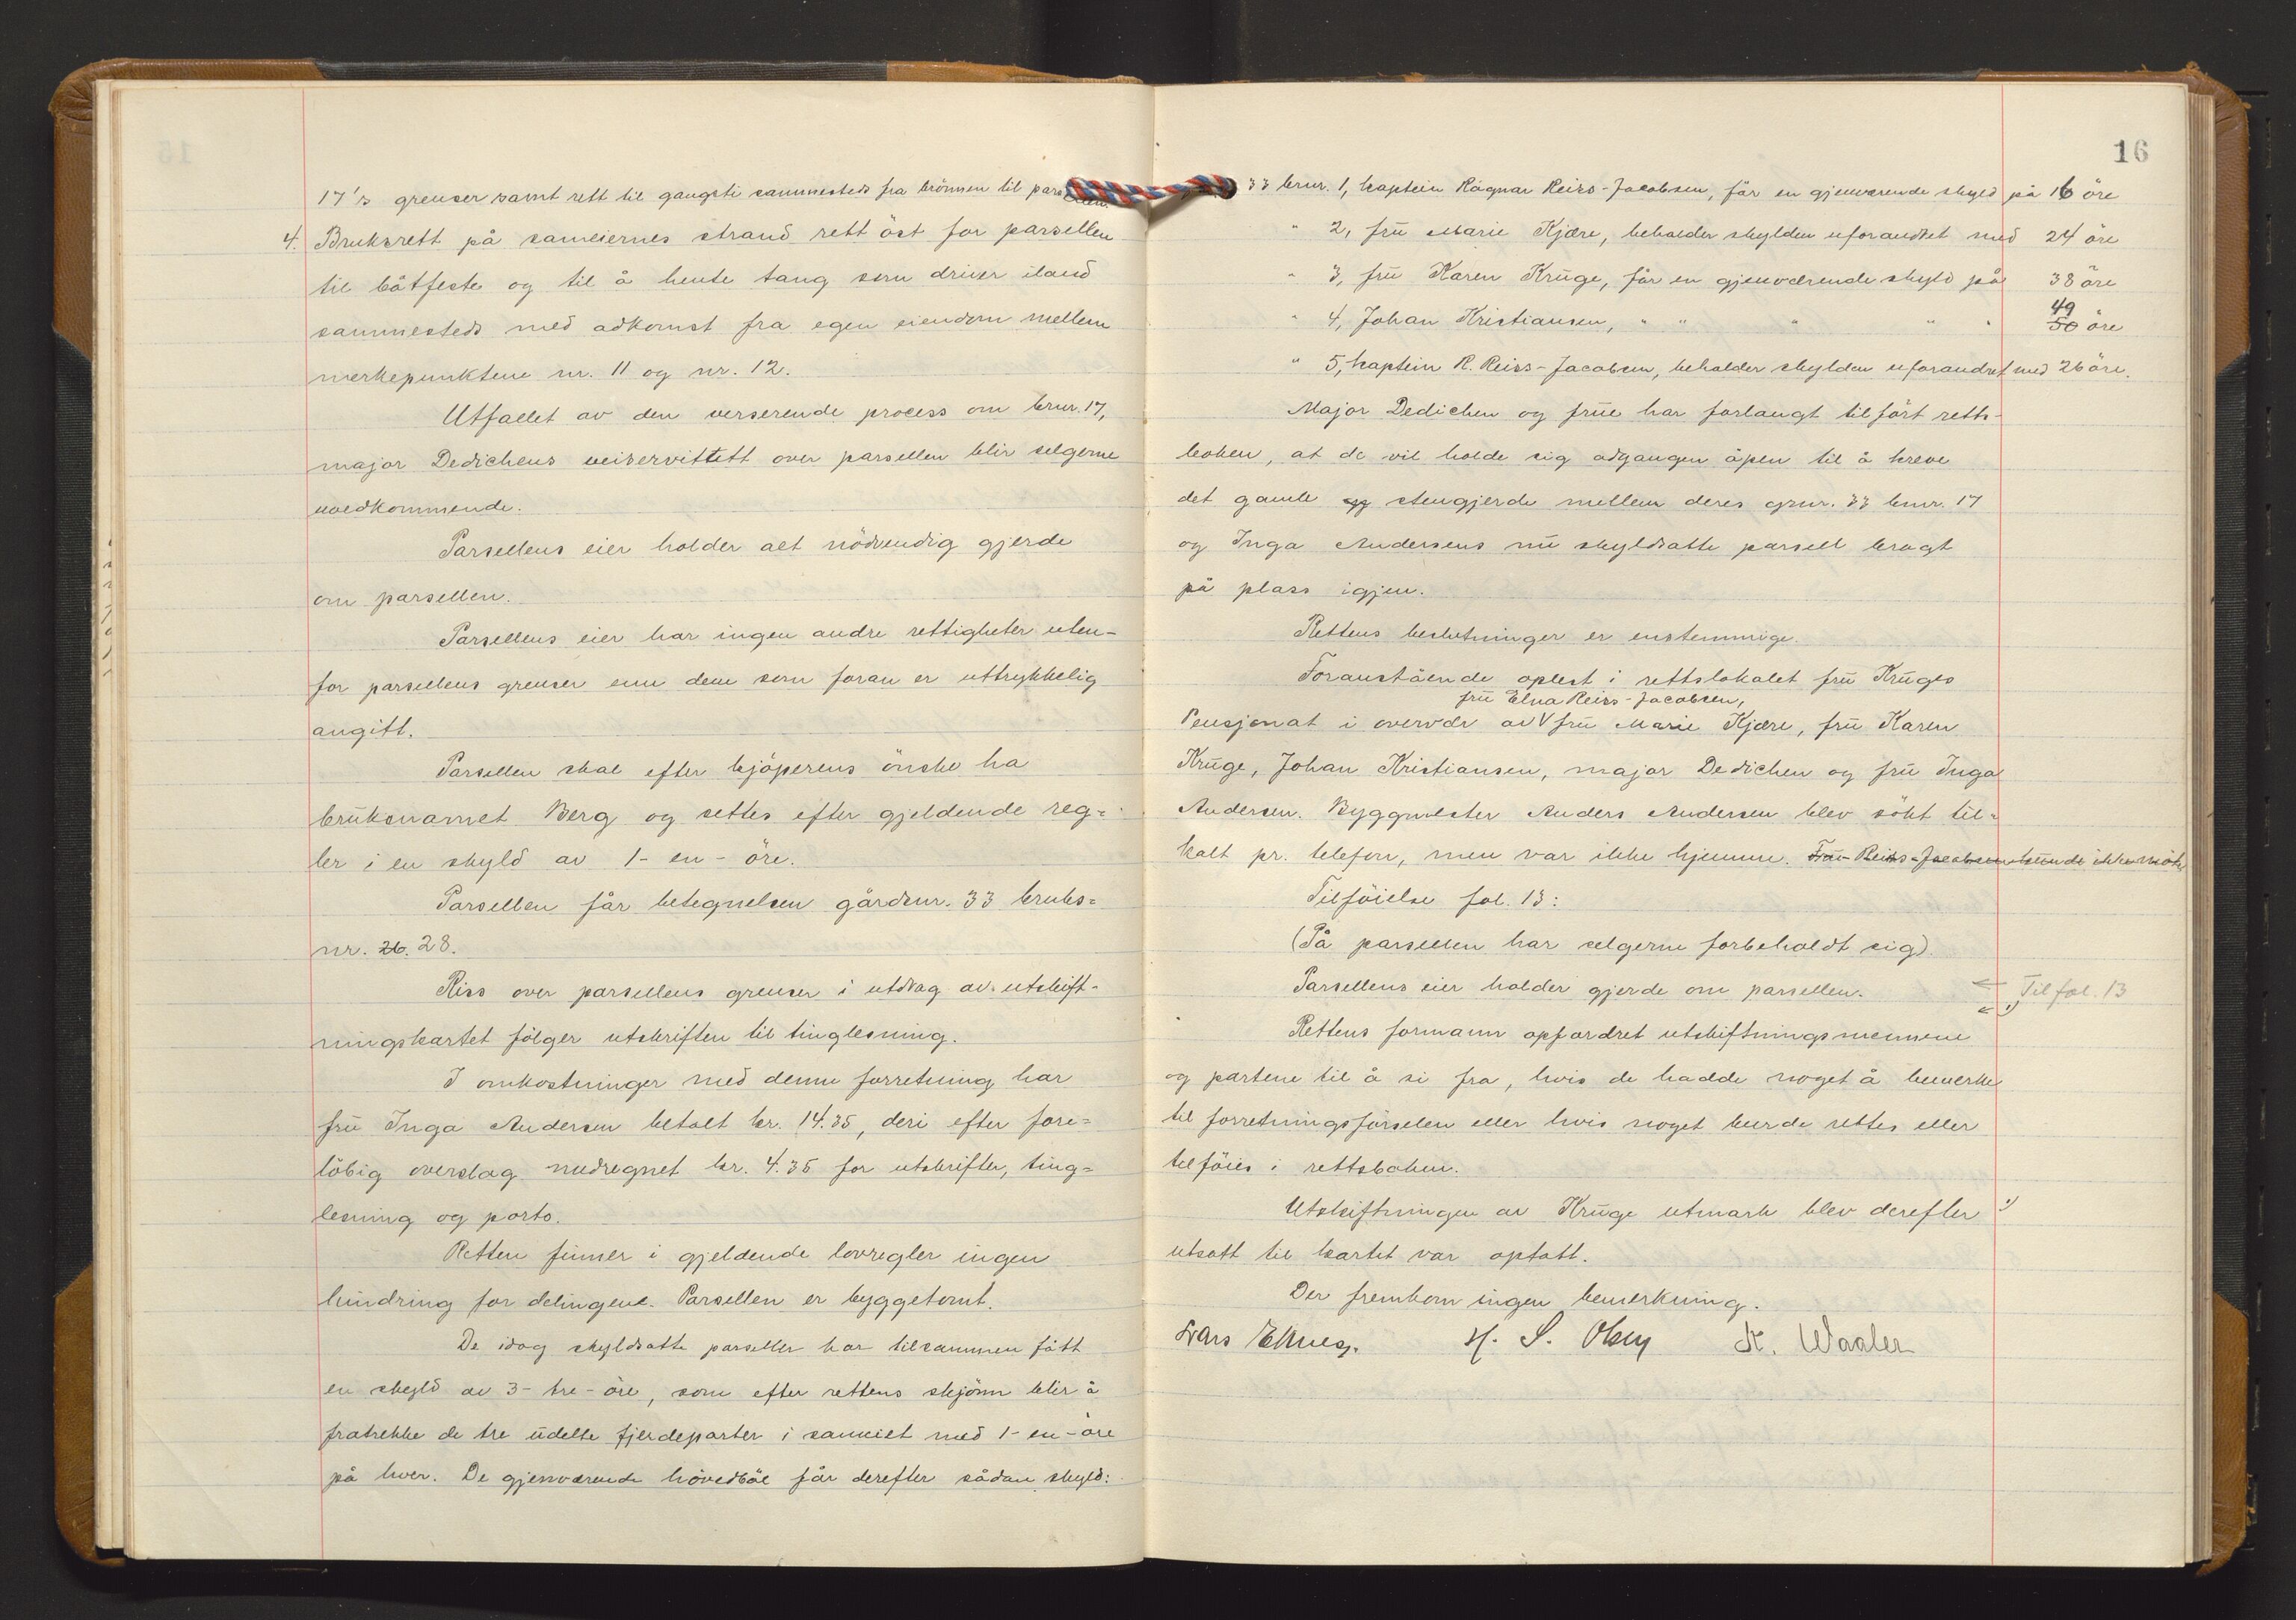 17's grenser samt rett til gangsti sammesteds fra brönnen til parsellen.
4. Bruksrett på sameiernes strand rett öst for parsellen
til båtfeste og til å hente tang som driver iland
sammesteds med adkomst fra egen eiendom mellem
merkepunktene nr. 11 og nr. 12.
Utfallet av den verserende process om brnr. 17,
major Dedichens veiservitutt over parsellen blir selgerne
uvedkommende.
Parsellens eier holder alt nödvendig gjerde
om parsellen.
Parsellens eier har ingen andre rettigheter uten-
for parsellens grenser enn dem som foran er uttrykkelig
angitt.
Parsellen skal efter kjöperens önske ha
bruksnamnet Berg og settes efter gjeldende reg=
ler i en skyld av 1- en - öre.
Parsellen får betegnelsen gårdsnr. 33 bruks=
nr. 26. 28.
Riss over parsellens grenser i utdrag av utskift-
ningskartet fölger utskriften til tinglesning.
I omkostninger med denne forretning har
fru Inga Andersen betalt kr. 14.35, deri efter fore=
löbig overslag medregnet kr. 4.35 for utskrifter, ting=
lesning og porto.
Retten finner i gjeldende lovregler ingen
hindring for delingene. Parsellen er byggetomt.
De idag skyldsatte parseller har tilsammen fått
en skyld av 3- tre - öre, som efter rettens skjönn blir å
fratrekke de tre udelte fjerdeparter i sameiet med 1- en - öre
på hver. De gjenværende hovedböl får derefter sådan skyld:
16
33 brnr. 1, kaptein Ragnar Reiss-Jacobsen, får en gjenværende skyld på 16 öre
" 2, fru Marie Kjære, beholder skylden uforandret med 24 öre
" 3, fru Karen Kruge, får en gjenværende skyld på 38 öre
49
" 4, Johan Kristiansen, " " " " " 50 öre
" 5, kaptein R. Reiss-Jacobsen, beholder skylden uforandret med 26 öre.
Major Dedichen og frue har forlangt tilfört retts-
boken, at de vil holde sig adgangen åpen til å kreve
det gamle stengjerde mellem deres gnr. 33 bnr. 17
og Inga Andersens nu skyldsatte parsell bragt
på plass igjen.
Rettens beslutninger er enstemmige.
Foranstående oplest i rettslokalet fru Kruges
fru Elna Reiss-Jacobsen,
Pensjonat i overvær av V fru Marie Kjære, fru Karen
Kruge, Johan Kristiansen, major Dedichen og fru Inga
Andersen. Byggmester Anders Andersen blev sökt til=
kalt pr. telefon, men var ikke hjemme. Fru Reiss-Jacobsen kunde ikke möte
Tilföielse fol. 13:
(På parsellen har selgerne forbeholdt sig)
Parsellens eier holder gjerde om parsellen. Til fol. 13
Rettens formann opfordret utskiftningsmennene
og partene til å si fra, hvis de hadde noget å bemerke
til forretningsförselen eller hvis noget burde rettes eller
tilföies i rettsboken.
Utskiftningen av Kruge utmark blev derefter
utsatt til kartet var optatt.
Der fremkom ingen bemerkning.
Lars Elnes. H. S. Olsen K. Waaler